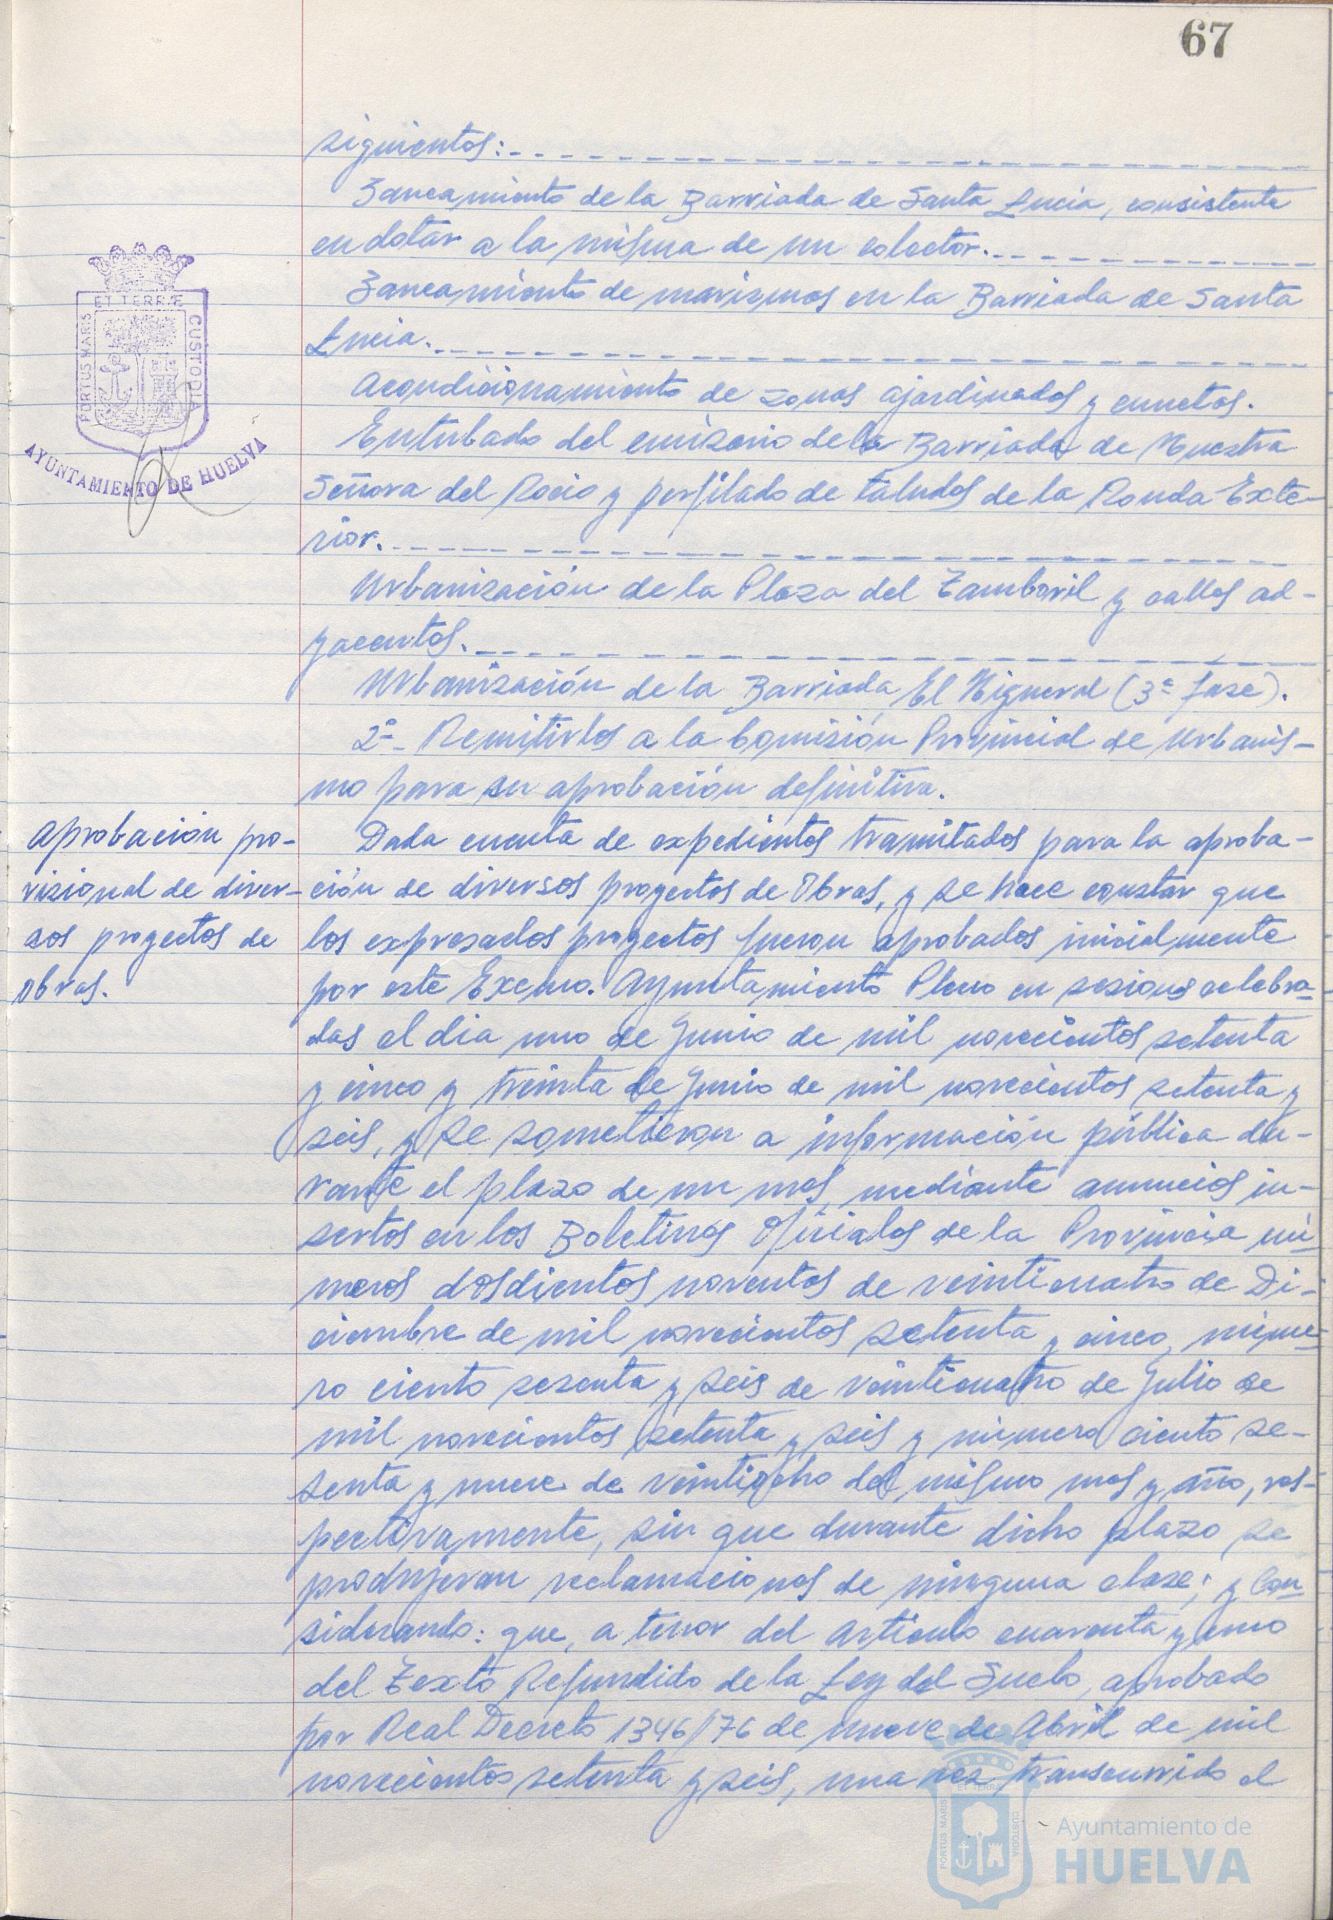 67
siguientes:
Saneamiento de la Barriada de Santa Lucia, consistente
en dotar a la misma de un colector.
Saneamiento de marismas en la Barriada de Santa
Lucia.
Acondicionamiento de zonas ajardinadas y cunetas.
Entubado del emisario de la Barriada de Nuestra
Señora del Rocio y perfilado de taludes de la Ronda Exte-
rior.
Urbanización de la Plaza del Tamboril y calles ad-
yacentes.
Urbanización de la Barriada El Higueral (3ª fase).
2º- Remitirlos a la Comisión Provincial de Urbanis-
mo para su aprobación definitiva.
Aprobación pro-
visional de diver-
sos proyectos de
obras.
Dada cuenta de expedientes tramitados para la aproba-
ción de diversos proyectos de Obras, y se hace constar que
los expresados proyectos fueron aprobados inicialmente
por este Excmo. Ayuntamiento Pleno en sesiones celebra-
das el dia uno de Junio de mil novecientos setenta
y cinco y treinta de Junio de mil novecientos setenta y
seis, y se sometieron a información pública du-
rante el plazo de un mes, mediante anuncios in-
sertos en los Boletines Oficiales de la Provincia nú-
meros doscientos noventos de veinticuatro de Di-
ciembre de mil novecientos setenta y cinco, núme-
ro ciento sesenta y seis de veinticuatro de Julio de
mil novecientos setenta y seis y número ciento se-
senta y nueve de veintiocho del mismo mes y año, res-
pectivamente, sin que durante dicho plazo se
produjeran reclamaciones de ninguna clase; y Con-
siderando: que, a tenor del artículo cuarenta y uno
del Texto Refundido de la Ley del Suelo, aprobado
por Real Decreto 1346/76 de nueve de Abril de mil
novecientos setenta y seis, una vez transcurrido el
PORTUS MARIS
ET TERRÆ
CUSTODIA
AYUNTAMIENTO DE HUELVA
PORTUS MARIS
CUSTODIA
Ayuntamiento de
HUELVA